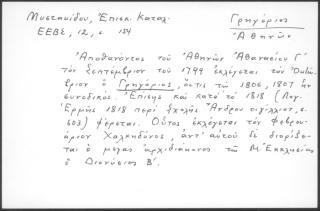 Μυστακίδου, Ἐπισκ. Καταλ.
ΕΕΒΣ, 12, σ. 154
Γρηγόριος
Ἀθηνῶν
Ἀποθανόντος τοῦ Ἀθηνῶν Ἀθανασίου Γ΄
τὸν Σεπτέμβριον τοῦ 1799 ἐκλέγεται τὸν Ὀκτώ-
βριον ὁ Γρηγόριος, ὅστις τῷ 1806, 1807 ἦν
συνοδικός. Ἐπίσης καὶ κατὰ τὸ 1818 (Λόγ.
Ἑρμῆς 1818 περὶ σχολῆς Ἄνδρου σιγίλλιον, σ.
603) φέρεται. Οὗτος ἐκλέγεται τὸν Φεβρου-
άριον Χαλκηδόνος, ἀντ' αὐτοῦ δὲ διορίζε-
ται ὁ μέγας ἀρχιδιάκονος τῆς Μ. Ἐκκλησίας
ὁ Διονύσιος Β΄.